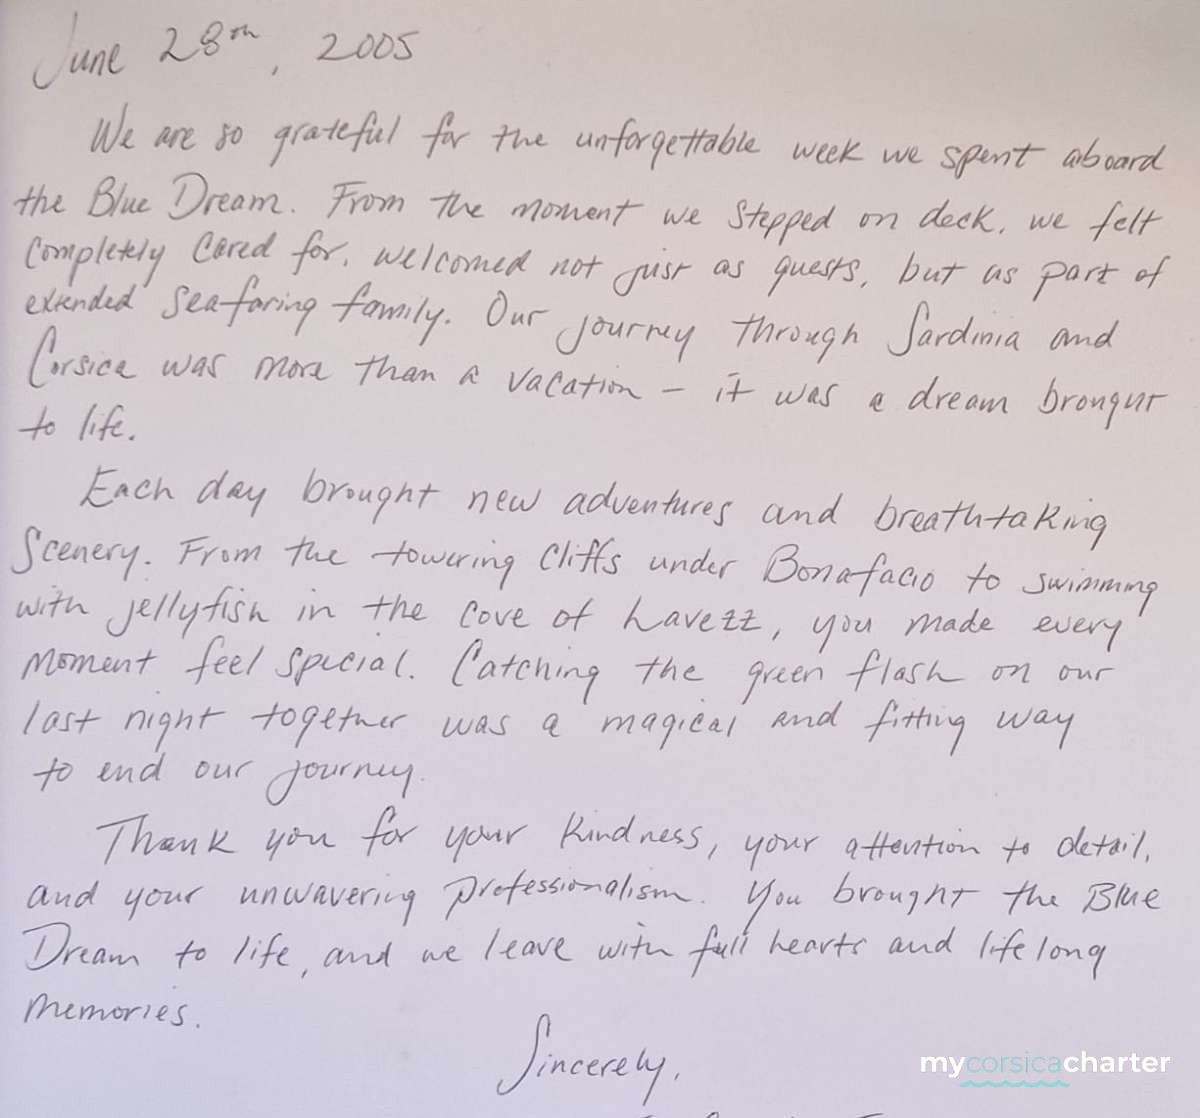 June 28th, 2005
We are so grateful for the unforgettable week we spent aboard
the Blue Dream. From the moment we stepped on deck, we felt
completely cared for, welcomed not just as guests, but as part of
extended seafaring family. Our journey through Sardinia and
Corsica was more than a vacation – it was a dream brought
to life.
Each day brought new adventures and breathtaking
scenery. From the towering cliffs under Bonafacio to swimming
with jellyfish in the cove of Lavezz, you made every
moment feel special. Catching the green flash on our
last night together was a magical and fitting way
to end our journey.
Thank you for your kindness, your attention to detail,
and your unwavering professionalism. You brought the Blue
Dream to life, and we leave with full hearts and lifelong
memories.
Sincerely,
mycorsicacharter